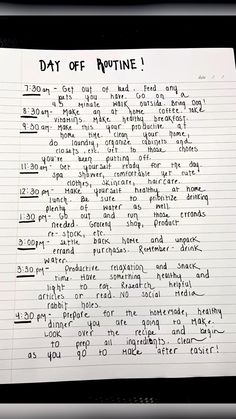 DAY OFF ROUTINE!
7:30 am - Get out of bed. Feed any
pets you have. Go on a
45 minute walk outside. Bring Dog!
8:30 am - Make an at home coffee. Take
vitamins. Make healthy breakfast.
9:30 am - Make this your productive at
home time. Clean your home,
do laundry, organize cabinets and
closets, etc. Get to those chores
you've been putting off.
11:30 am - Get yourself ready for the day.
spa shower, comfortable yet cute
clothes, skincare, haircare.
12:30 pm - Make yourself healthy, at home
lunch. Be sure to prioritize drinking
plenty of water as well.
1:30 pm - Go out and run those errands
needed. Grocery shop, product
re-stock, etc.
3:00 pm - Settle back home and unpack
errand purchases. Remember, drink
water.
3:30 pm - Productive relaxation and snack
time. Have something healthy and
light to eat. Research helpful
articles or read. NO social media
rabbit holes.
4:30 pm - Prepare for the homemade, healthy
dinner you are going to make.
LOOK over the recipe and begin
to prep all ingredients. Clean
as you go to make after easier!